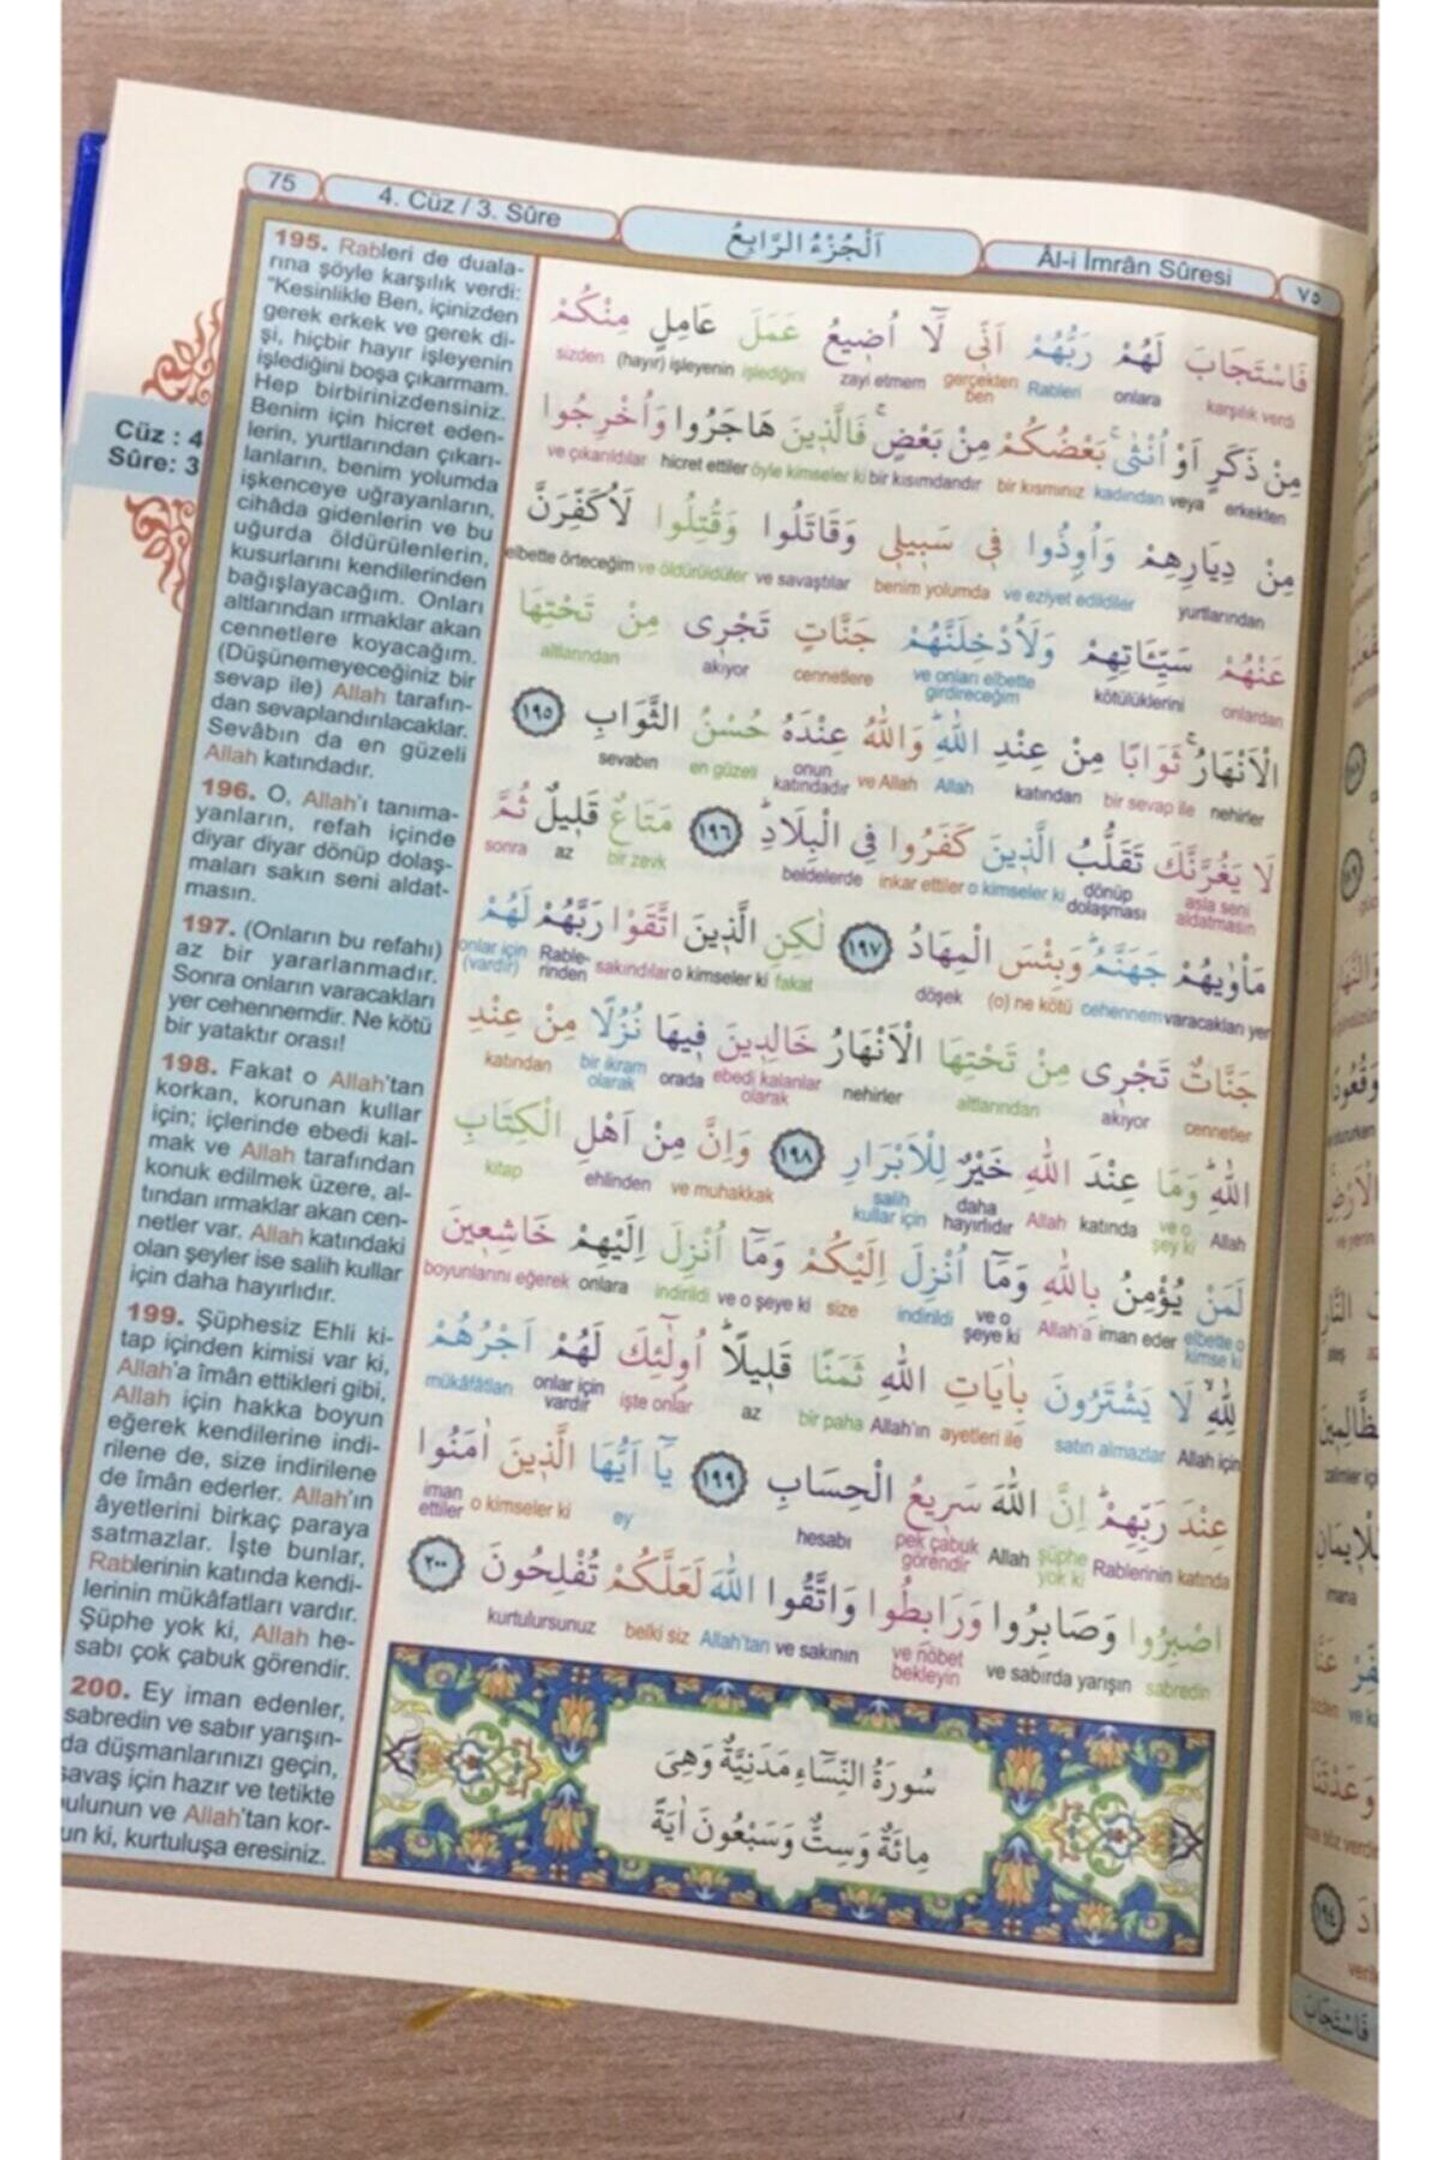 75
4. Cüz / 3. Sûre
اَلْجُزْءُ الرَّابِعُ
Âl-i İmrân Sûresi
٧٥
Cüz : 4
Sûre: 3
195. Rableri de duala-
rına şöyle karşılık verdi:
"Kesinlikle Ben, içinizden
gerek erkek ve gerek di-
şi, hiçbir hayır işleyenin
işlediğini boşa çıkarmam.
Hep birbirinizdensiniz.
Benim için hicret eden-
lerin, yurtlarından çıkarı-
lanların, benim yolumda
işkenceye uğrayanların,
cihâda gidenlerin ve bu
uğurda öldürülenlerin,
kusurlarını kendilerinden
bağışlayacağım. Onları
altlarından ırmaklar akan
cennetlere koyacağım.
(Düşünemeyeceğiniz bir
sevap ile) Allah tarafın-
dan sevaplandırılacaklar.
Sevâbın da en güzeli
Allah katındadır.
196. O, Allah'ı tanıma-
yanların, refah içinde
diyar diyar dönüp dolaş-
maları sakın seni aldat-
masın.
197. (Onların bu refahı)
az bir yararlanmadır.
Sonra onların varacakları
yer cehennemdir. Ne kötü
bir yataktır orası!
198. Fakat o Allah'tan
korkan, korunan kullar
için; içlerinde ebedi kal-
mak ve Allah tarafından
konuk edilmek üzere, al-
tından ırmaklar akan cen-
netler var. Allah katındaki
olan şeyler ise salih kullar
için daha hayırlıdır.
199. Şüphesiz Ehli ki-
tap içinden kimisi var ki,
Allah'a îmân ettikleri gibi,
Allah için hakka boyun
eğerek kendilerine indi-
rilene de, size indirilene
de îmân ederler. Allah'ın
âyetlerini birkaç paraya
satmazlar. İşte bunlar,
Rablerinin katında kendi-
lerinin mükâfatları vardır.
Şüphe yok ki, Allah he-
sabı çok çabuk görendir.
200. Ey iman edenler,
sabredin ve sabır yarışın-
da düşmanlarınızı geçin,
savaş için hazır ve tetikte
bulunun ve Allah'tan kor-
un ki, kurtuluşa eresiniz.
فَاسْتَجَابَ لَهُمْ رَبُّهُمْ اَنّ۪ي لَٓا اُض۪يعُ عَمَلَ عَامِلٍ مِنْكُمْ
karşılık verdi onlara Rableri gerçekten ben zayi etmem işlediğini (hayır) işleyenin sizden
مِنْ ذَكَرٍ اَوْ اُنْثٰىۚ بَعْضُكُمْ مِنْ بَعْضٍۚ فَالَّذ۪ينَ هَاجَرُوا وَاُخْرِجُوا
erkekten veya kadından bir kısmınız bir kısımdandır öyle kimseler ki hicret ettiler ve çıkarıldılar
مِنْ دِيَارِهِمْ وَاُو۫ذُوا ف۪ي سَب۪يل۪ي وَقَاتَلُوا وَقُتِلُوا لَاُكَفِّرَنَّ
yurtlarından ve eziyet edildiler benim yolumda ve savaştılar ve öldürüldüler elbette örteceğim
عَنْهُمْ سَيِّـَٔاتِهِمْ وَلَاُدْخِلَنَّهُمْ جَنَّاتٍ تَجْر۪ي مِنْ تَحْتِهَا
onlardan kötülüklerini ve onları elbette girdireceğim cennetlere akıyor altlarından
الْاَنْهَارُۚ ثَوَابًا مِنْ عِنْدِ اللّٰهِۜ وَاللّٰهُ عِنْدَهُ حُسْنُ الثَّوَابِ ١٩٥
nehirler bir sevap ile katından Allah ve Allah onun katındadır en güzeli sevabın
لَا يَغُرَّنَّكَ تَقَلُّبُ الَّذ۪ينَ كَفَرُوا فِي الْبِلَادِۜ ١٩٦ مَتَاعٌ قَل۪يلٌ ثُمَّ
asla seni aldatmasın dönüp dolaşması o kimseler ki inkar ettiler beldelerde bir zevk az sonra
مَأْوٰيهُمْ جَهَنَّمُۜ وَبِئْسَ الْمِهَادُ ١٩٧ لٰكِنِ الَّذ۪ينَ اتَّقَوْا رَبَّهُمْ لَهُمْ
varacakları yer cehennem (o) ne kötü döşek fakat o kimseler ki sakındılar Rable-rinden onlar için (vardır)
جَنَّاتٌ تَجْر۪ي مِنْ تَحْتِهَا الْاَنْهَارُ خَالِد۪ينَ ف۪يهَا نُزُلًا مِنْ عِنْدِ
cennetler akıyor altlarından nehirler ebedi kalanlar olarak orada bir ikram olarak katından
اللّٰهِۜ وَمَا عِنْدَ اللّٰهِ خَيْرٌ لِلْاَبْرَارِ ١٩٨ وَاِنَّ مِنْ اَهْلِ الْكِتَابِ
Allah ve o şey ki katında Allah daha hayırlıdır salih kullar için ve muhakkak ehlinden kitap
لَمَنْ يُؤْمِنُ بِاللّٰهِ وَمَٓا اُنْزِلَ اِلَيْكُمْ وَمَٓا اُنْزِلَ اِلَيْهِمْ خَاشِع۪ينَ
elbette o kimse ki iman eder Allah'a ve o şeye ki indirildi size ve o şeye ki indirildi onlara boyunlarını eğerek
لِلّٰهِۙ لَا يَشْتَرُونَ بِاٰيَاتِ اللّٰهِ ثَمَنًا قَل۪يلًاۜ اُو۬لٰٓئِكَ لَهُمْ اَجْرُهُمْ
Allah için satın almazlar ayetleri ile Allah'ın bir paha az işte onlar onlar için vardır mükâfatları
عِنْدَ رَبِّهِمْۜ اِنَّ اللّٰهَ سَر۪يعُ الْحِسَابِ ١٩٩ يَٓا اَيُّهَا الَّذ۪ينَ اٰمَنُوا
katında Rablerinin şüphe yok ki Allah pek çabuk görendir hesabı ey o kimseler ki iman ettiler
اصْبِرُوا وَصَابِرُوا وَرَابِطُوا وَاتَّقُوا اللّٰهَ لَعَلَّكُمْ تُفْلِحُونَ ٢٠٠
sabredin ve sabırda yarışın ve nöbet bekleyin ve sakının Allah'tan belki siz kurtulursunuz
سُورَةُ النِّسَٓاءِ مَدَنِيَّةٌ وَهِيَ
مِائَةٌ وَسِتٌّ وَسَبْعُونَ اٰيَةً
١٩٤
فَاسْتَجَابَ